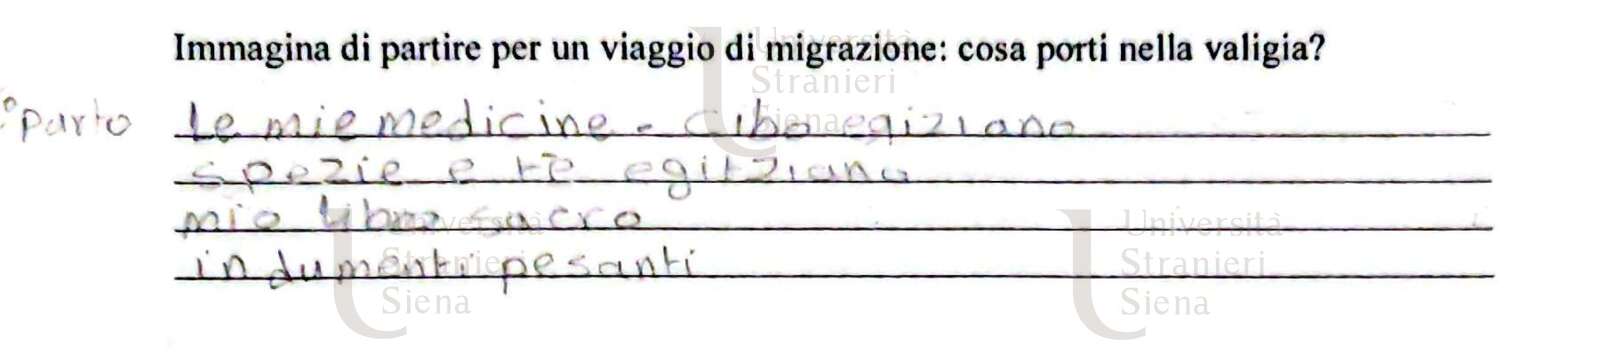 Immagina di partire per un viaggio di migrazione: cosa porti nella valigia?
parto le mie medicine - cibo egiziano
spezie e tè egitziano
mio libro sacro
indumenti pesanti
Università
Stranieri
Siena
Università
Stranieri
Siena
Università
Stranieri
Siena